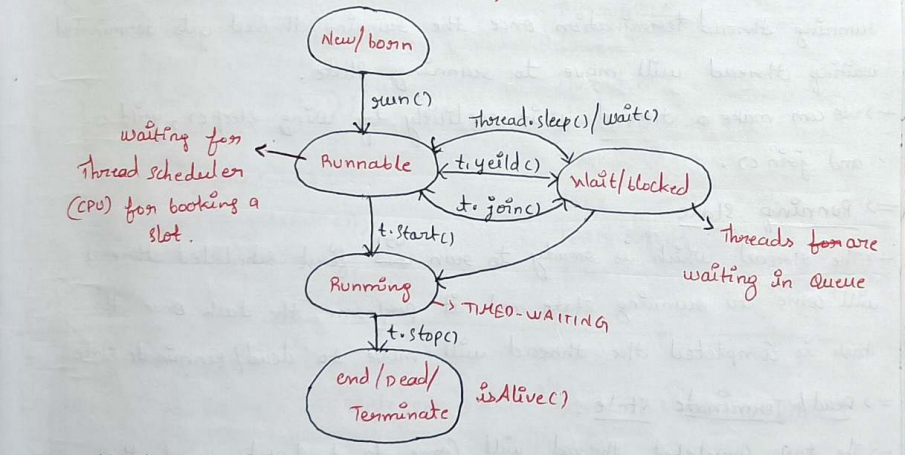 New/born
run()
Thread.sleep()/wait()
waiting for
Thread scheduler
(CPU) for booking a
slot.
Runnable
t.yeild()
wait/blocked
t.join()
Threads for are
waiting in Queue
t.start()
Running
TIMED-WAITING
t.stop()
end/Dead/
Terminate
isAlive()